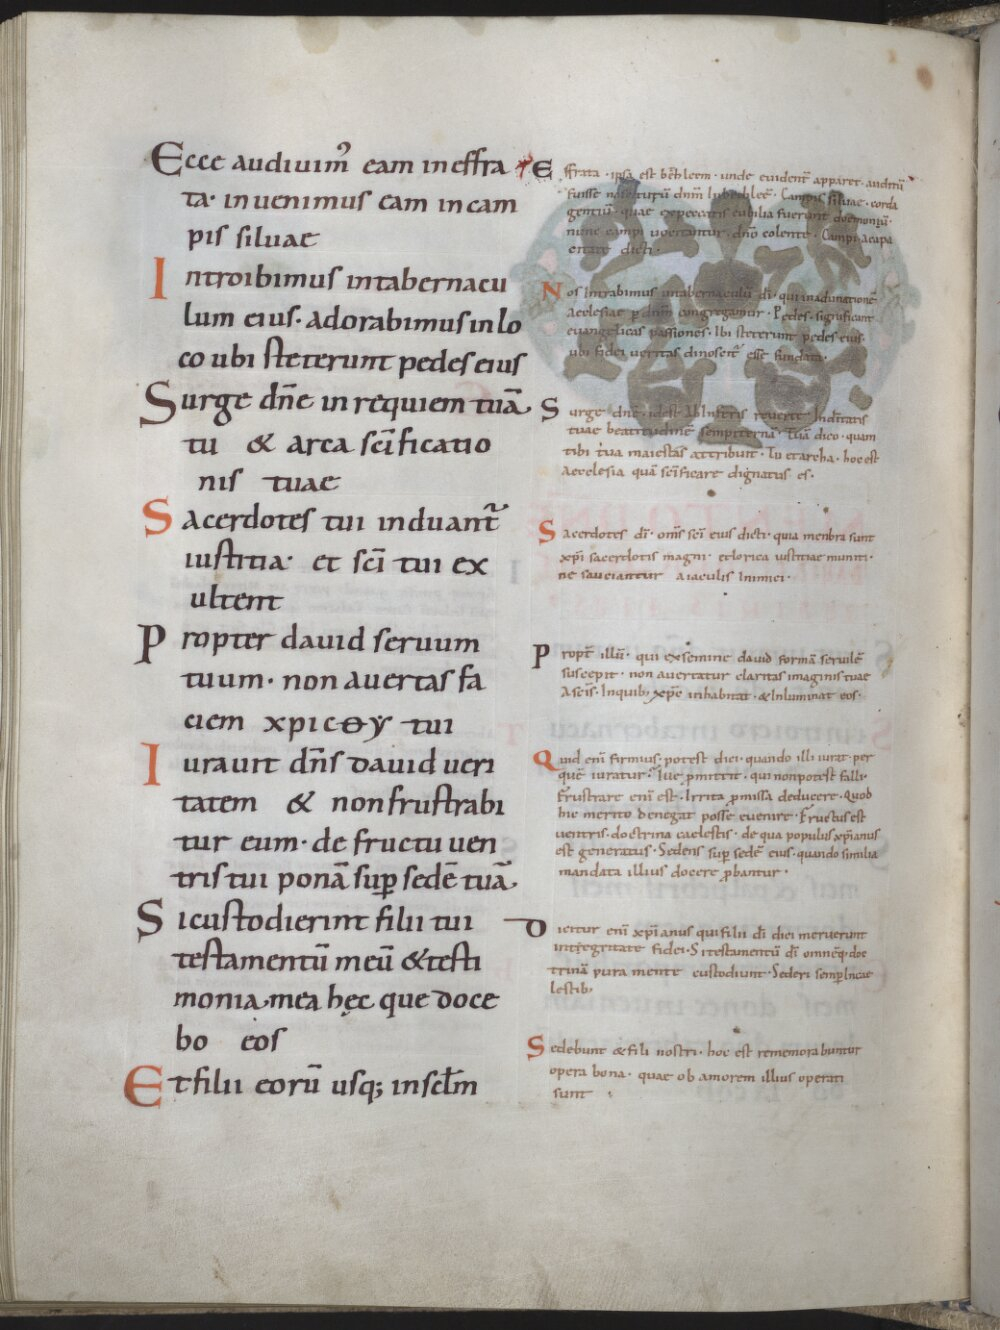 Ecce audiuim̃ eam in effra
ta · inuenimus eam in cam
pis siluae
Introibimus in tabernacu
lum eius · adorabimus in lo
co ubi steterunt pedes eius
Surge dñe in requiem tuã
tu & arca scīficatio
nis tuae
Sacerdotes tui induant̃
iustitia · et scī tui ex
ultent
Propter dauid seruum
tuum · non auertas fa
ciem xpicθy tui
Iurauit dñs dauid ueri
tatem & non frustrabi
tur eum · de fructu uen
tris tui ponã sup sedē tuã
Si custodierint filii tui
testamentū meū & testi
monia mea hęc que doce
bo eos
Et filii eorū usq; in sclm̄
Effrata · ipsa est bethleem · unde euident apparet · auditū
fuisse dnm̄ In bethleē · Campis siluae · corda
gentiū · quae cubilia fuerunt doemoniū ·
nunc campi uocantur · dño colente · Campi acapa
citate dicti ·
Nos Intrabimus intabernaculū dī · qui inadunationē
Aeclesiae p dnm̄ congregamur · Pedes · significant
euangelicas passiones · Ibi steterunt pedes eius ·
ubi fidei ueritas dinoscit̃ esse fundata ·
Surge dnē · idest Ab Inferis reuerte Indiuitatis
tuae beatitudinē sempiternā · Tuā dico · quam
tibi tua maiestas attribuit · Tu et archa · hoc est
Aecclesia quā scīficare dignatus es ·
Sacerdotes dī · om̄s scī eius dicti · quia menbra sunt
xpī sacerdotis magni · et lorica iustitiae muniti ·
ne saucientur a iaculis Inimici ·
Propt̃ illū · qui ex semine dauid formā seruilē
suscepit · non auertatur claritas imaginis tuae
A scīs · In quib; xpc̄ inhabitat · & Inluminat eos ·
Quid enī firmius · potest dici · quando illi iurat · per
quē iuratur · Iue pmittit · qui non potest falli ·
Frustrare enī est · Irrita pmissa deducere · Quob
hic merito denegat posse euenire · Fructus est
uentris · doctrina caelestis · de qua populus xpianus
est generatus · Sedens sup sedē eius · quando similia
mandata illius docere pbantur ·
Dicitur enī xpianus qui filii dī dici meruerunt
integritate fidei · Si testamentū dī omnēq; doc
trinā pura mente custodiunt · Sederi semp Incae
lestib;
Sedebunt & fili nostri · hoc est rememorabuntur
opera bona · quae ob amorem illius operati
sunt ·